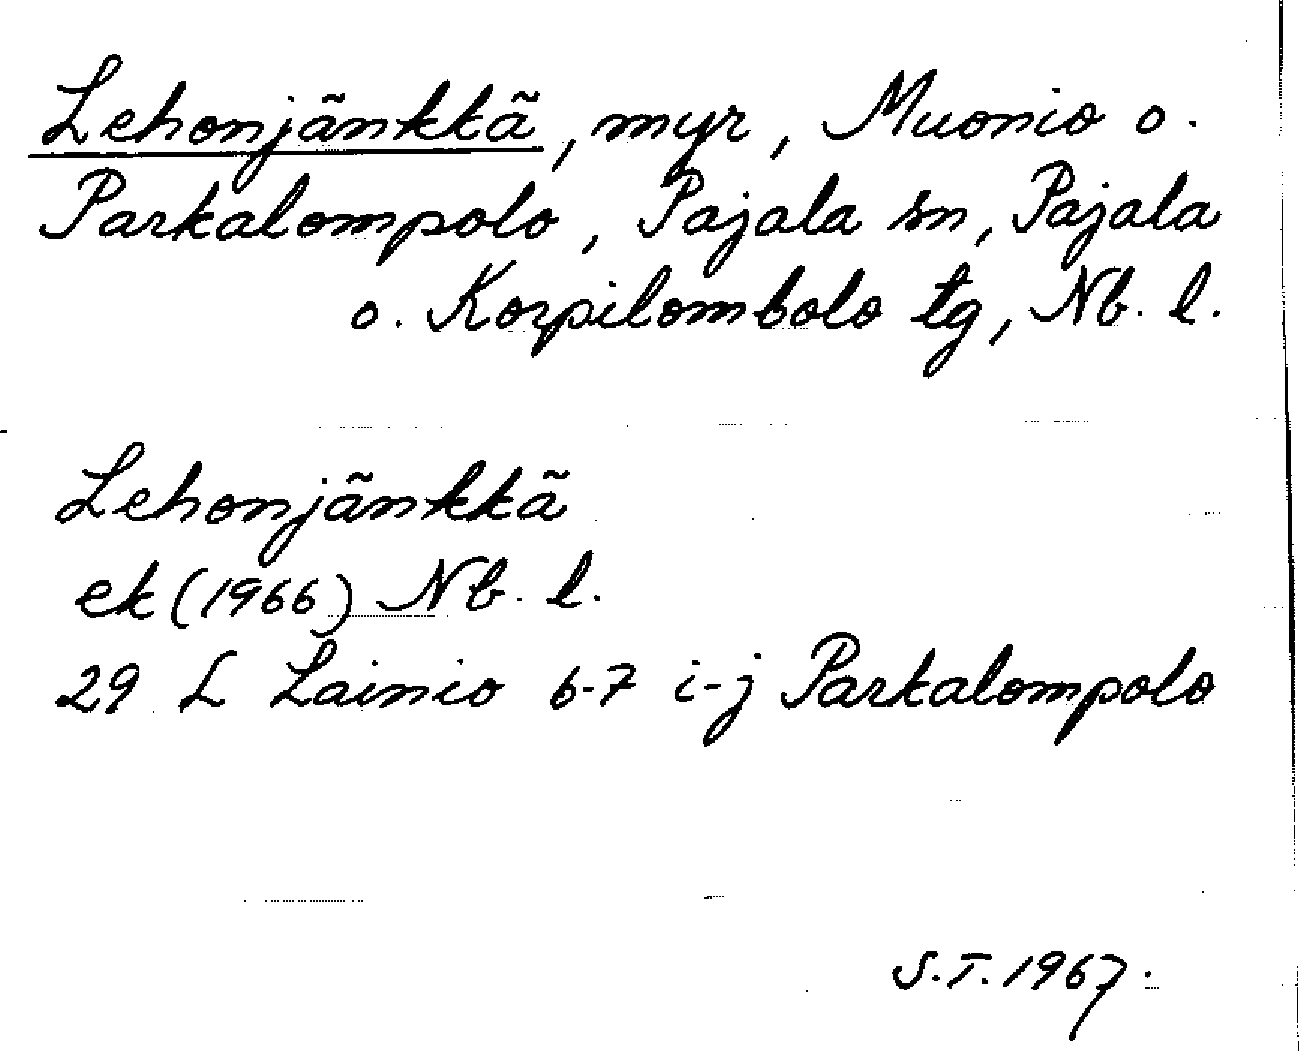 Lehonjänkkä, myr, Muonio o.
Parkalompolo, Pajala sn, Pajala
o. Korpilombolo tg, Nb. l.
Lehonjänkkä
ek (1966) Nb. l.
29 L Lainio 6-7 i-j Parkalompolo
S.T. 1967.